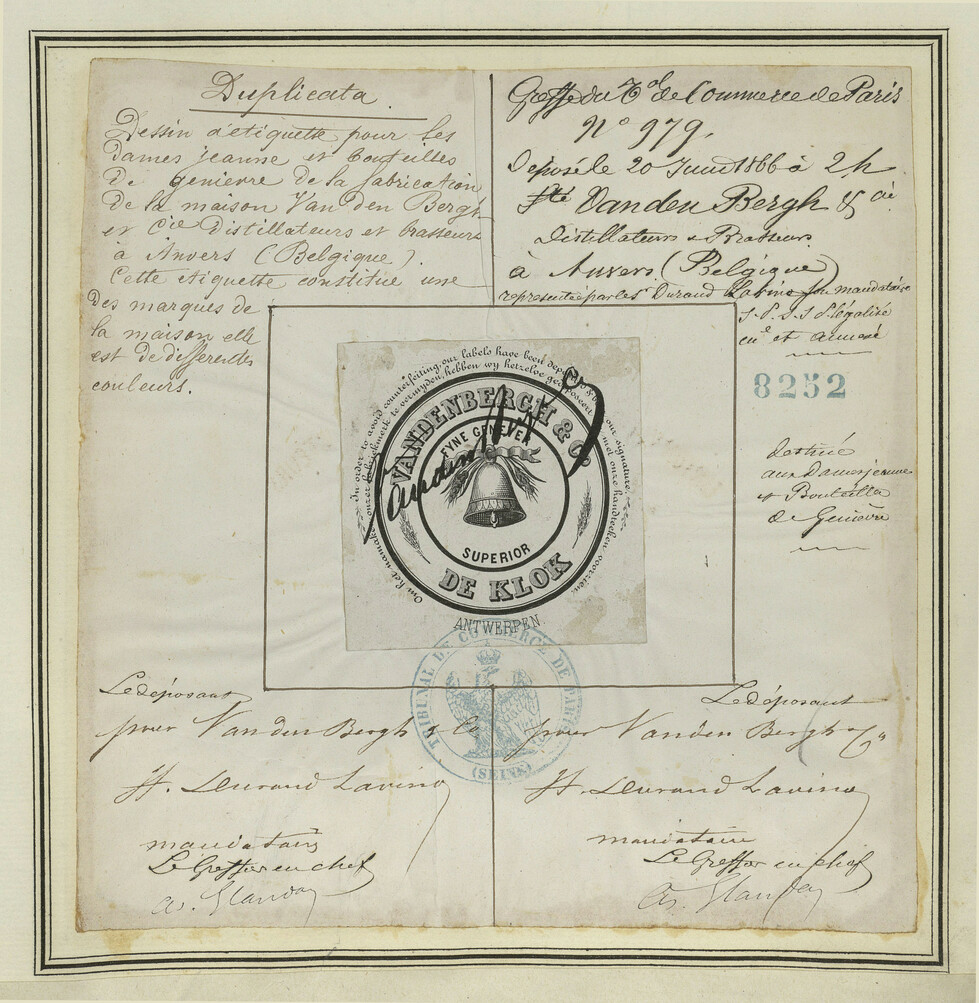 Duplicata.
Dessin d'etiquette pour les
dames jeanne et bouteilles
de genievre de la fabrication
de la maison Van den Bergh
et Cie distillateurs et brasseurs
à Anvers (Belgique).
Cette etiquette constitue une
des marques de
la maison elle
est de differentes
couleurs.
Greffe du Tal de Commerce de Paris
No 979.
Deposé le 20 Juin 1866 à 2 h
Sté Vanden Bergh & Cie
Distillateurs & Brasseurs
à Anvers (Belgique)
representée par le Sr Durand Lavino son mandataire
légalisé
et annexé
8252
destiné
aux Damesjeannes
et Bouteilles
de Genièvre
In order to avoid counterfeiting, our labels have been deposited & our signature.
Om het namaken onzer fabriekmerk te vermyden, hebben wy hetzelve gedeponeert met onze handteeken voorzien.
VANDENBERGH & Co
FYNE GENEVER
SUPERIOR
DE KLOK
ANTWERPEN.
TRIBUNAL DE COMMERCE DE PARIS
(SEINE)
Le déposant
pour Van den Bergh & Co
H. Durand Lavino
mandataire
Le Greffier en chef
Le déposant
pour Vanden Bergh & Co
H. Durand Lavino
mandataire
Le Greffier en chef